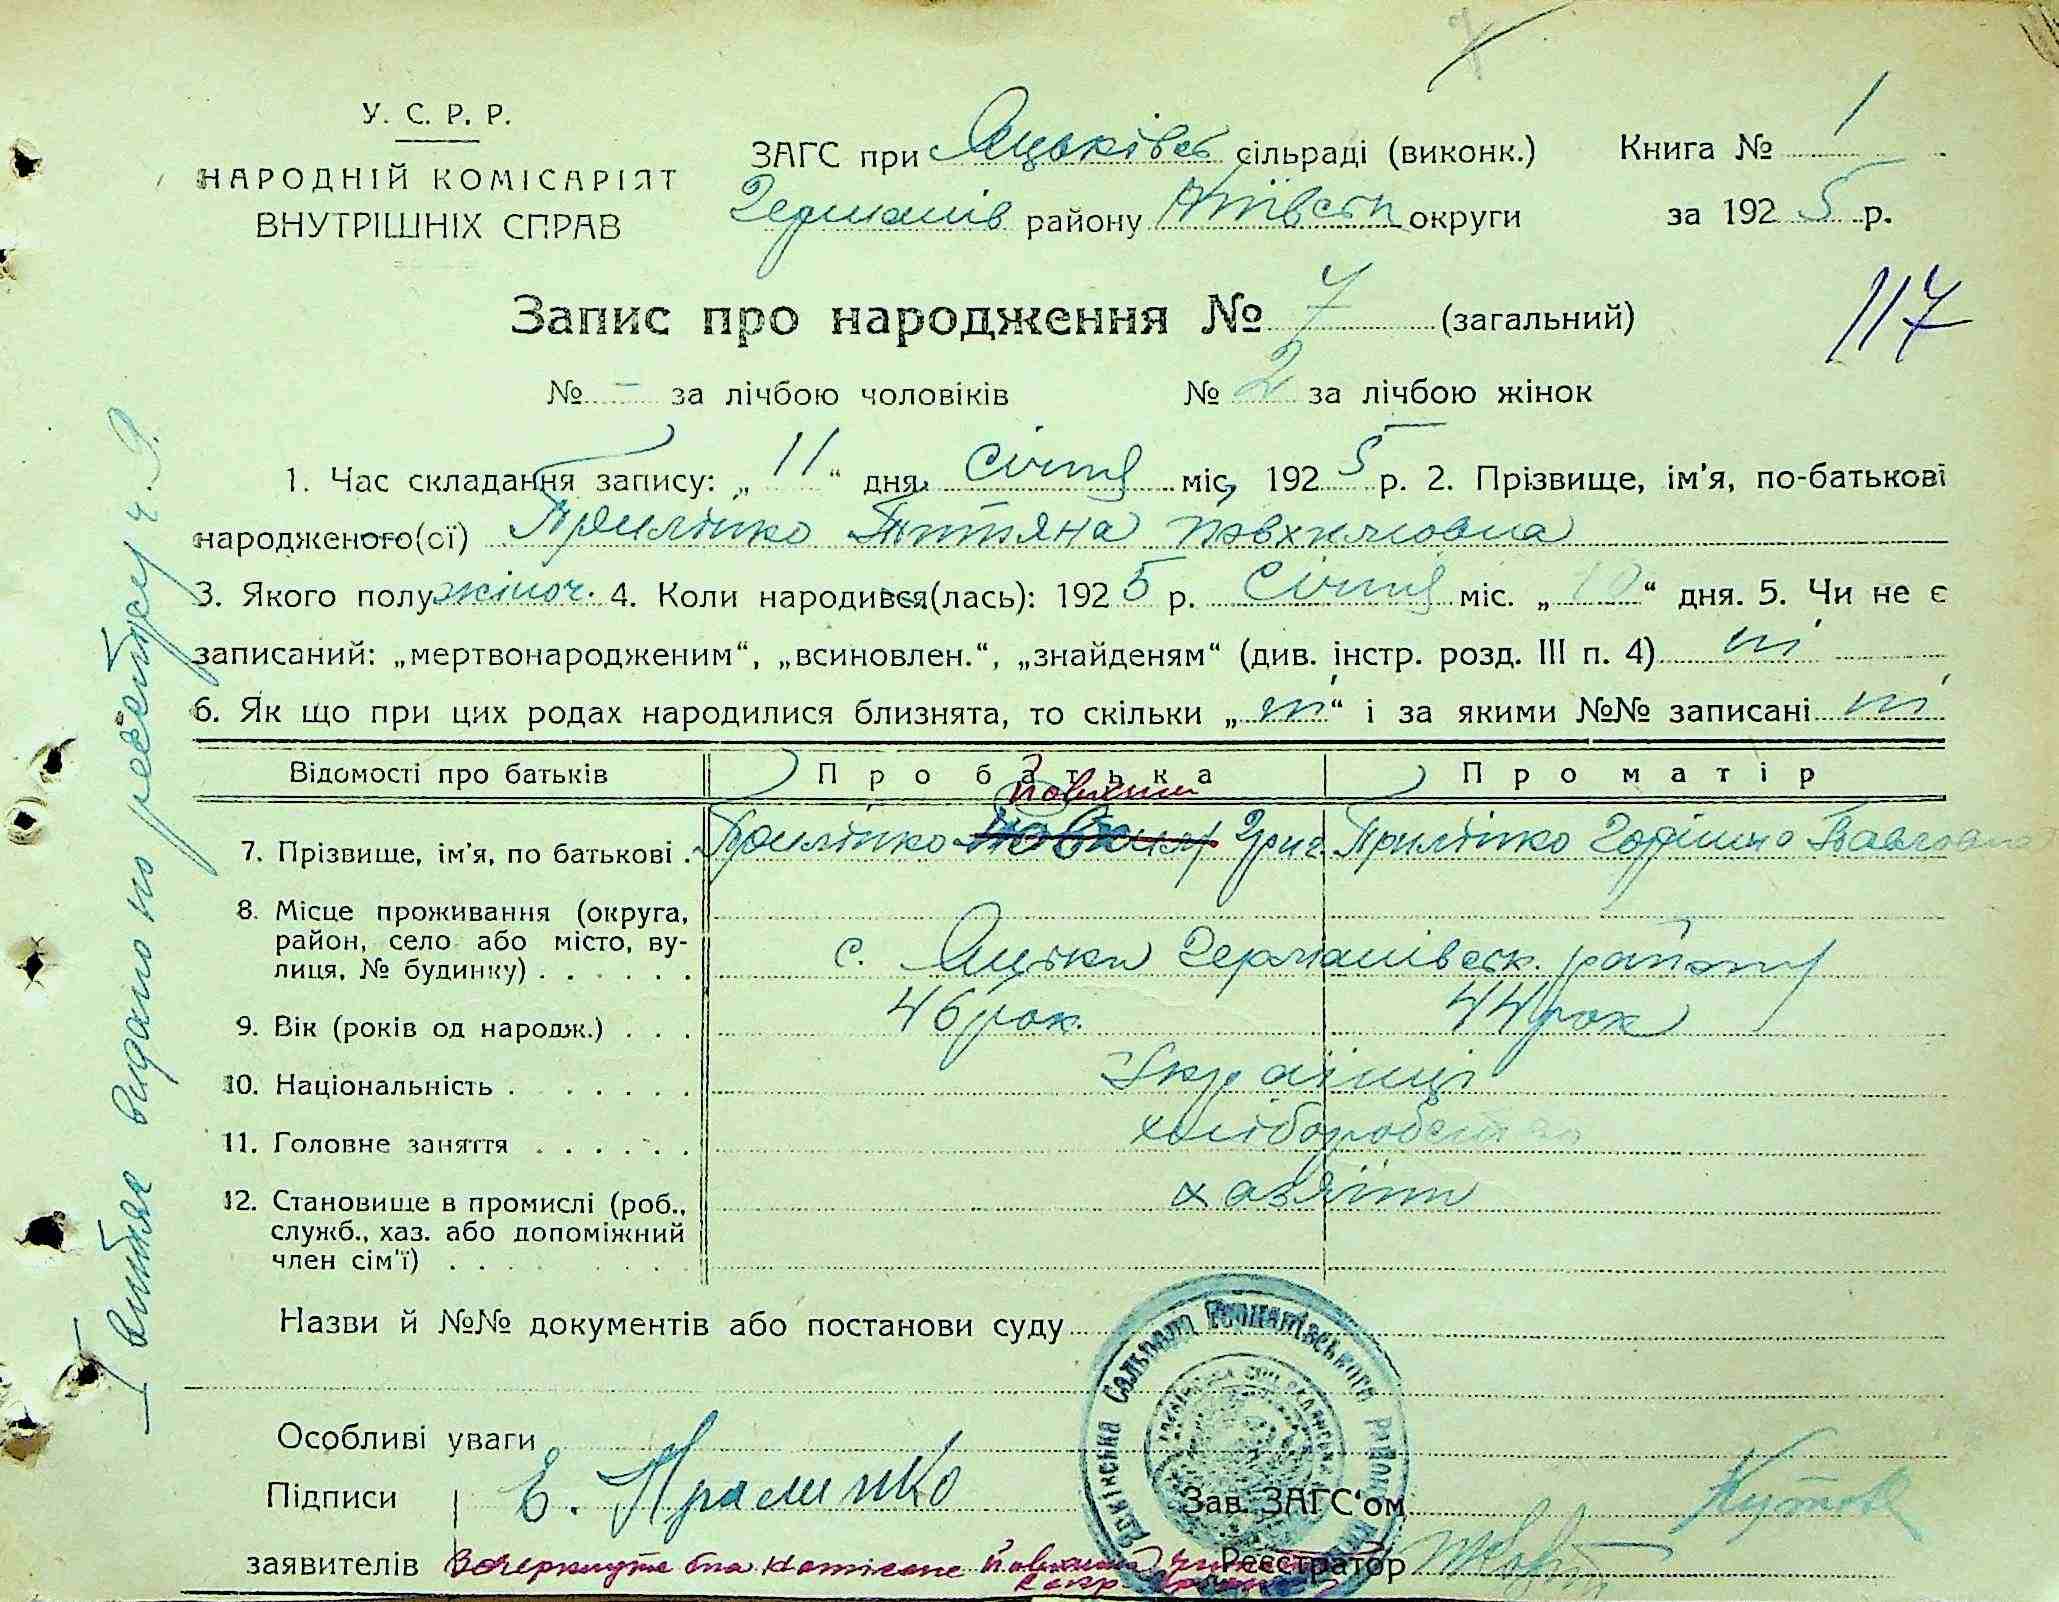 У. С. Р. Р.
НАРОДНІЙ КОМІСАРІЯТ
ВНУТРІШНІХ СПРАВ
ЗАГС при Яцьківск сільраді (виконк.) Книга № 1
Германів району округи за 1925 р.
117
Запис про народження № 7 (загальний)
№ – за лічбою чоловіків № 2 за лічбою жінок
1. Час складання запису: „ 11 “ дня Січня міс, 1925 р. 2. Прізвище, ім'я, по-батькові
народженого(сї) Приліпко Тетяна
3. Якого полу жіноч. 4. Коли народився(лась): 1925 р. Січня міс. „ 10 “ дня. 5. Чи не є
записаний: „мертвонародженим“, „всиновлен.“, „знайденям“ (див. інстр. розд. III п. 4) ні
6. Як що при цих родах народилися близнята, то скільки „ ні “ і за якими №№ записані ні
Відомості про батьків Про батька Про матір
7. Прізвище, ім'я, по батькові . Приліпко Григ. Приліпко Павловна
8. Місце проживання (округа,
район, село або місто, ву-
лиця, № будинку) . . . . . . с. Яцьки Германівськ. району
9. Вік (років од народж.) . . . 46 рок. 44 рок
10. Національність . . . . . . . Українці
11. Головне заняття . . . . . . хліборобство
12. Становище в промислі (роб.,
служб., хаз. або допоміжний
член сім'ї) . . . хазяїни
Назви й №№ документів або постанови суду
Особливі уваги
Підписи Е. Прилипко Зав. ЗАГС'ом
заявителів Реєстратор